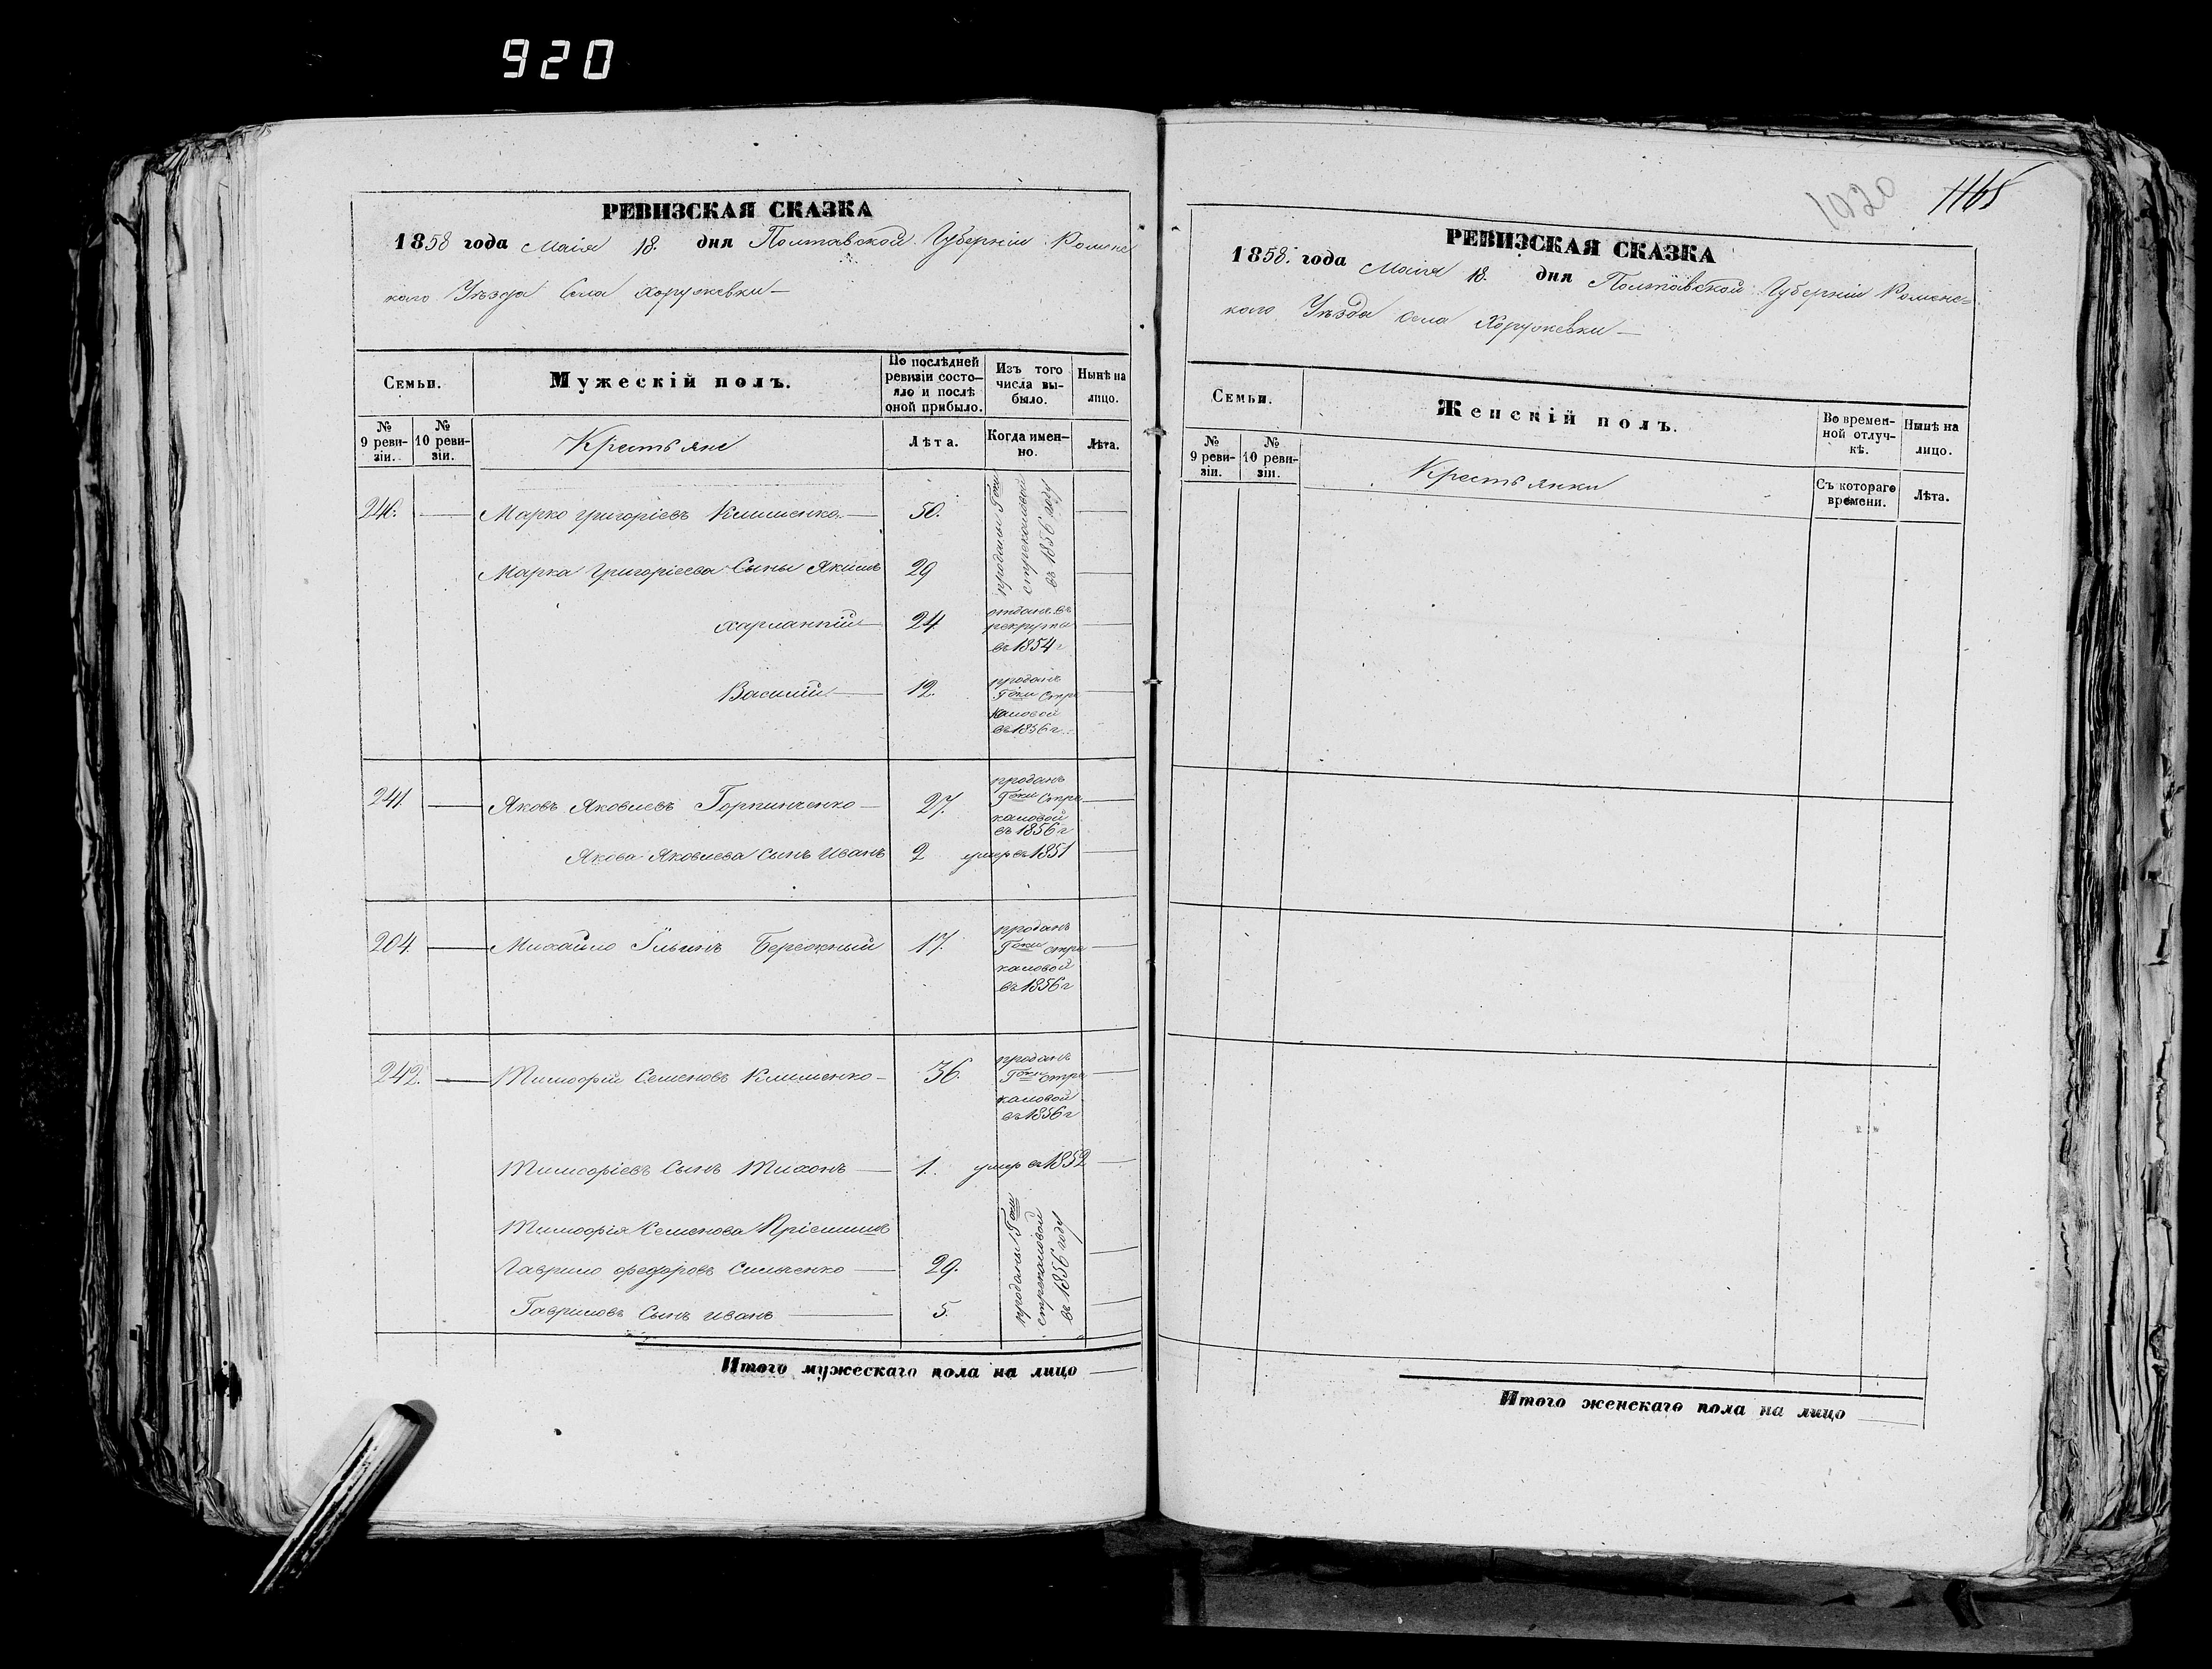 920
РЕВИЗСКАЯ СКАЗКА
1858 года Маія 18. дня Полтавской Губерніи Роменс
каго Уѣзда Села Хоружевки —
Семьи.
Мужескій полъ.
По послѣдней ревизіи состо— яло и послѣ оной прибыло.
Изъ того числа вы— было.
Нынѣ на лицо.
№ 9 реви- зіи.
№ 10 реви- зіи.
Крестьяне
Лѣта.
Когда имен- но.
Лѣта.
240. — Марко Григоріевъ Клименко — 50.
проданы Г̃жи Стрекаловой въ 1856 году
Марка Григоріева Сыны Якимъ 29
Харлампій 24 отданъ въ рекруты въ 1854 г
Василій — 12. проданъ Г̃жи Стре каловой въ 1856 г.
241 — Яковъ Яковлевъ Горпинченко — 27. проданъ Г̃жи Стре каловой въ 1856 г
Якова Яковлева Сынъ Иванъ 2 умер въ 1851
204. — Михайло Ильинъ Бережный 17. проданъ Г̃жи Стре каловой въ 1856 г
242. — Тимофій Семеновъ Клименко — 36. проданъ Г̃жи Стре каловой въ 1856 г
Тимофіевъ Сынъ Тихонъ — 1. умер въ 1852
Тимофія Семенова Пріемышъ
Гаврило Федоровъ Сильченко — 29.
проданы Г̃жи Стрекаловой въ 1856 году
Гавриловъ Сынъ Иванъ — 5.
Итого мужескаго пола на лицо —
1020
1165
РЕВИЗСКАЯ СКАЗКА
1858. года Маія 18. дня Полтавской Губерніи Роменс=
каго Уѣзда села Хоружевки —
Семьи.
Женскій полъ.
Во времен- ной отлуч- кѣ.
Нынѣ на лицо.
№ 9 реви- зіи.
№ 10 реви- зіи.
Крестьянки
Съ котораго времени.
Лѣта.
Итого женскаго пола на лицо —